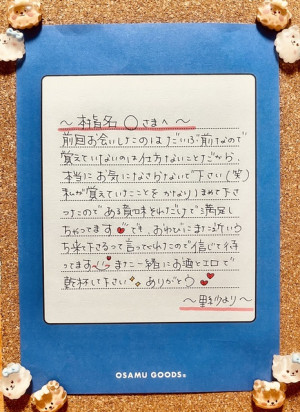 ～椎名○さまへ～
前回お会いしたのはだいぶ前なので
覚えていないのは仕方ないことだから、
本当にお気になさらないで下さい(笑)
私が覚えていたことをかなりほめて下さ
ったのである意味それだけで満足し
ちゃってます❤でも、おわびにまた近いう
ち来て下さるって言ってくれたので信じて待
ってます また一緒にお酒とエロで
乾杯して下さい✨ありがとう❤❤
～里紗より～
OSAMU GOODS®